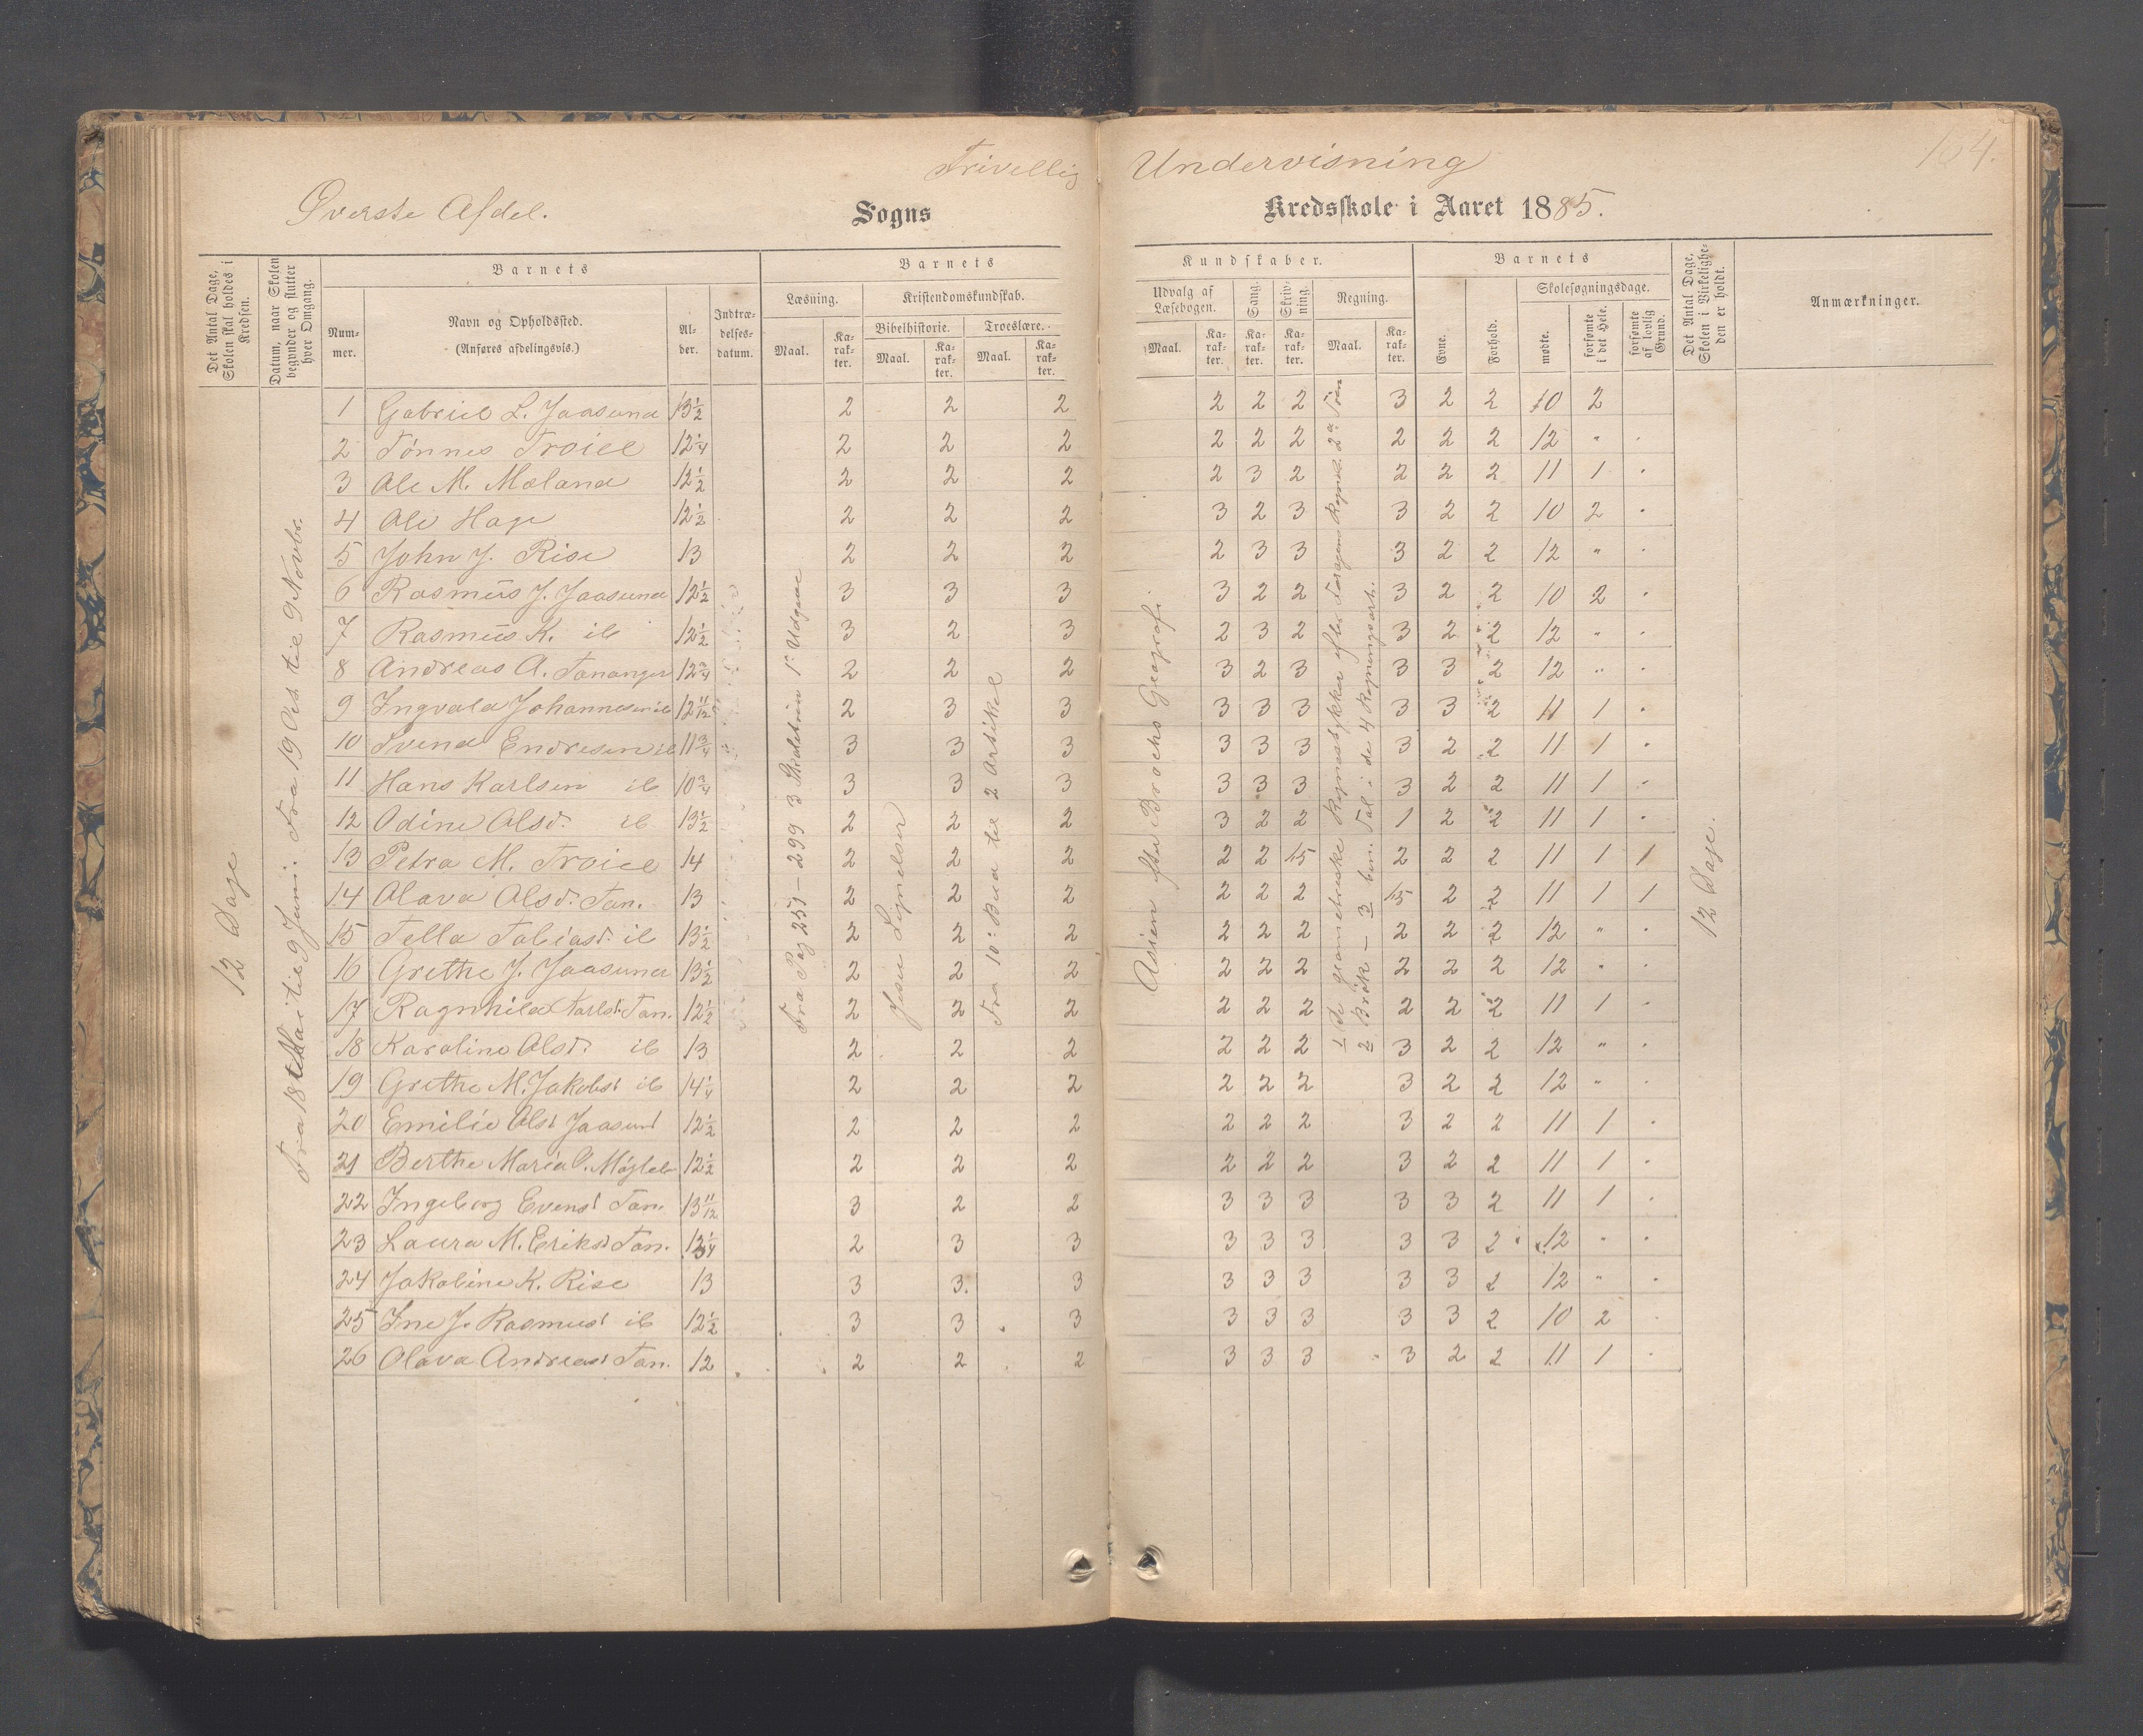 Frivellig Undervisning
154.
Øverste Afdel. Sogns Kredsskole i Aaret 1885.
Det Antal Dage, Skolen skal holdes i Kredsen.
Datum, naar Skolen begynder og slutter hver Omgang.
Barnets
Nummer.
Navn og Opholdssted.
(Anføres afdelingsvis.)
Alder.
Indtrædelsesdatum.
Barnets
Læsning.
Kristendomskundskab.
Bibelhistorie. Troeslære.
Maal. Karakter. Maal. Karakter. Maal. Karakter.
Kundskaber.
Udvalg af Læsebogen. Sang. Skrivning. Regning.
Maal. Karakter. Karakter. Karakter. Maal. Karakter.
Barnets
Evne. Forhold.
Skolesøgningsdage.
mødte. forsømte i det Hele. forsømte af lovlig Grund.
Det Antal Dage, Skolen i Virkeligheden er holdt.
Anmærkninger.
12 Dage
Fra 18 Mai til 9 Juni. Fra 19 Oct til 9 Novbr.
Fra Pag 251 – 299 3 Skoletrin 1ste Udgave
Jesu Lignelser
Fra 10de Bud til 2 Artikel
Asien efter Brochs Geografi
1 De geometriske Regnestykker efter
2 Brøk – 3 ben. Tal i de 4 Regningsart.
12 Dage.
1 Gabriel L. Jaasund 13½ 2 2 2 2 2 2 3 2 2 10 2
2 Tønnes Troiel 12¼ 2 2 2 2 2 2 2 2 2 12 " .
3 Ole M. Mæland 12½ 2 2 2 2 3 2 2 2 2 11 1 .
4 Ole Hage 12½ 2 2 2 3 2 3 3 2 2 10 2 .
5 John J. Rise 13 2 2 2 2 3 3 3 2 2 12 " .
6 Rasmus J. Jaasund 12½ 3 3 3 3 2 2 3 2 2 10 2 .
7 Rasmus K. ib 12½ 3 2 3 2 3 2 3 2 2 12 " .
8 Andreas A. Tananger 12¾ 2 2 2 3 2 3 3 3 2 12 " .
9 Ingvald Johannesen ib 12 11/12 2 3 3 3 3 3 3 3 2 11 1 .
10 Svend Endresen ib 11¾ 3 3 3 3 3 3 3 2 2 11 1 .
11 Hans Karlsen ib 10¾ 3 3 3 3 3 3 3 2 2 11 1 .
12 Odine Olsd. ib 13½ 2 2 2 3 2 2 1 2 2 11 1 .
13 Petra M. Troiel 14 2 2 2 2 2 1,5 2 2 2 11 1 1
14 Olava Olsd. Tan. 13 2 2 2 2 2 2 1,5 2 2 11 1 1
15 Tella Tobiasd. ib 13½ 2 2 2 2 2 2 2 2 2 12 " .
16 Grethe J. Jaasund 13½ 2 2 2 2 2 2 2 2 2 12 " .
17 Ragnhild Karlsd. Tan. 12½ 2 2 2 2 2 2 2 2 2 11 1 .
18 Karoline Olsd. ib 13 2 2 2 2 2 2 3 2 2 12 " .
19 Grethe M. Jakobsd ib 14¼ 2 2 2 2 2 2 3 2 2 12 " .
20 Emilie Olsd Jaasund 12½ 2 2 2 2 2 2 3 2 2 11 1 .
21 Berthe Maria 12½ 2 2 2 2 2 2 3 2 2 11 1 .
22 Ingeborg Evensd Tan. 13 11/12 3 2 2 3 3 3 3 3 2 11 1 .
23 Laura M. Eriksd Tan. 2 3 3 3 3 3 3 3 2 12 " .
24 Jakobine K. Rise 13 3 3 3 3 3 3 3 3 2 12 " .
25 Ine J. Rasmusd ib 12½ 3 3 3 3 3 3 3 3 2 10 2 .
26 Olava Andreasd Tan. 12 2 2 2 3 3 3 3 2 2 11 1 .